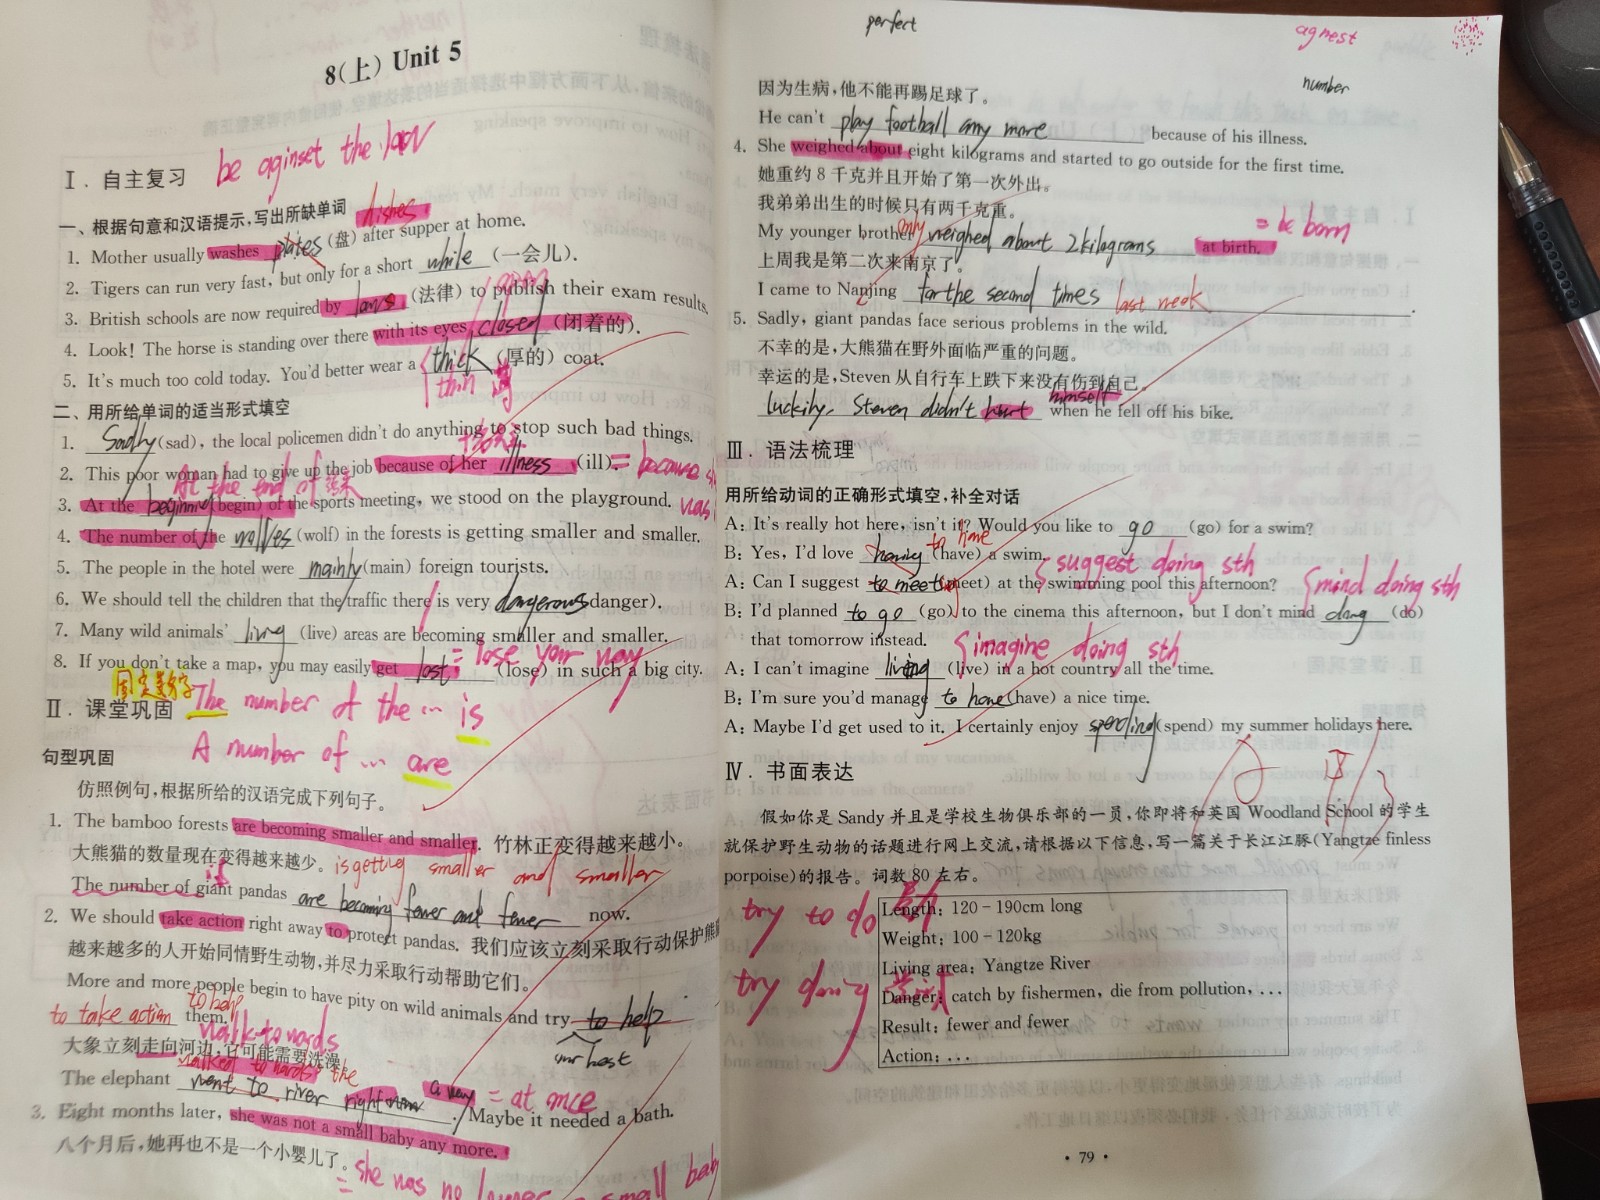 8(上) Unit 5
be aginset the law
Ⅰ. 自主复习
一、根据句意和汉语提示,写出所缺单词
dishes
1. Mother usually washes plates (盘) after supper at home.
2. Tigers can run very fast, but only for a short while (一会儿).
3. British schools are now required by laws (法律) to publish their exam results.
4. Look! The horse is standing over there with its eyes closed (闭着的).
5. It's much too cold today. You'd better wear a thick (厚的) coat.
thin 薄
二、用所给单词的适当形式填空
1. Sadly (sad), the local policemen didn't do anything to stop such bad things.
2. This poor woman had to give up the job because of her illness (ill). = because
At the end of 结束
was
3. At the beginning (begin) of the sports meeting, we stood on the playground.
4. The number of the wolves (wolf) in the forests is getting smaller and smaller.
5. The people in the hotel were mainly (main) foreign tourists.
6. We should tell the children that the traffic there is very dangerous danger).
7. Many wild animals' living (live) areas are becoming smaller and smaller.
= lose your way
8. If you don't take a map, you may easily get lost (lose) in such a big city.
The number of the … is
Ⅱ. 课堂巩固
A number of … are
句型巩固
仿照例句,根据所给的汉语完成下列句子。
1. The bamboo forests are becoming smaller and smaller. 竹林正变得越来越小。
大熊猫的数量现在变得越来越少。
is getting smaller and smaller
The number of giant pandas are becoming fewer and fewer now.
2. We should take action right away to protect pandas. 我们应该立刻采取行动保护熊
越来越多的人开始同情野生动物,并尽力采取行动帮助它们。
More and more people begin to have pity on wild animals and try to help
to take action to help them.
walk towards
大象立刻走向河边,它可能需要洗澡。
walked towards the
The elephant went to river right now. Maybe it needed a bath.
= at once
3. Eight months later, she was not a small baby any more.
八个月后,她再也不是一个小婴儿了。
= she was no longer a small baby
perfect
agnest
number
因为生病,他不能再踢足球了。
He can't play football any more because of his illness.
4. She weighed about eight kilograms and started to go outside for the first time.
她重约 8 千克并且开始了第一次外出。
我弟弟出生的时候只有两千克重。
= be born
My younger brother only weighed about 2 kilograms at birth.
上周我是第二次来南京了。
I came to Nanjing for the second times last week.
5. Sadly, giant pandas face serious problems in the wild.
不幸的是,大熊猫在野外面临严重的问题。
幸运的是,Steven 从自行车上跌下来没有伤到自己。
himself
luckily, Steven didn't hurt when he fell off his bike.
Ⅲ. 语法梳理
用所给动词的正确形式填空,补全对话
A: It's really hot here, isn't it? Would you like to go (go) for a swim?
to have
B: Yes, I'd love having (have) a swim.
suggest doing sth
A: Can I suggest to meet (meet) at the swimming pool this afternoon?
mind doing sth
B: I'd planned to go (go) to the cinema this afternoon, but I don't mind doing (do)
that tomorrow instead.
imagine doing sth
A: I can't imagine living (live) in a hot country all the time.
B: I'm sure you'd manage to have (have) a nice time.
A: Maybe I'd get used to it. I certainly enjoy spending (spend) my summer holidays here.
Ⅳ. 书面表达
假如你是 Sandy 并且是学校生物俱乐部的一员,你即将和英国 Woodland School 的学生
就保护野生动物的话题进行网上交流,请根据以下信息,写一篇关于长江江豚(Yangtze finless
porpoise)的报告。词数 80 左右。
try to do
try doing 尝试
Length: 120-190cm long
Weight: 100-120kg
Living area: Yangtze River
Danger: catch by fishermen, die from pollution, ...
Result: fewer and fewer
Action: ...
· 79 ·